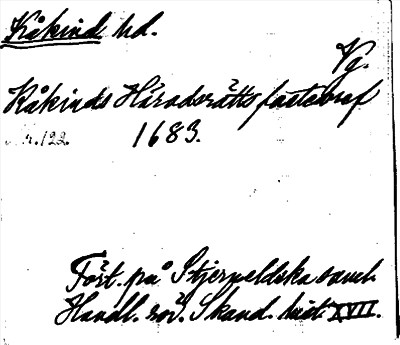 Kåkind hd.
Vg.
Kåkinds Häradsrätts fastebref
n.122. 1683.
Fört. på Stjerneldska saml.
Handl. rör. Skand. hist. XVII.